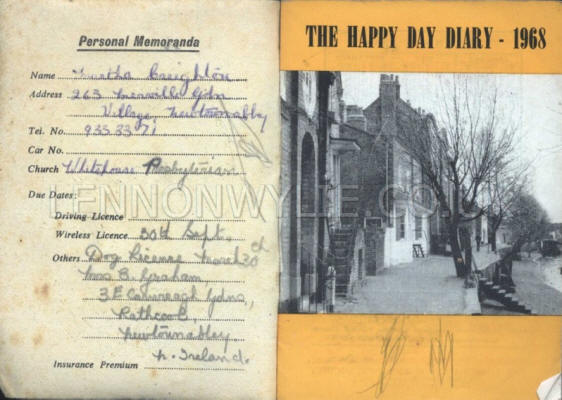 Personal Memoranda
Name Creighton
Address 263 Merville Gdn
Village, Newtownabby
Tel. No. 935 33 71
Car No.
Church Whitehouse Presbyterian
Due Dates:
Driving Licence
Wireless Licence 30th Sept.
Others Dog License March 30
Mrs B. Graham,
3 Gdns,
Rathcool,
Newtownabbey,
N. Ireland.
Insurance Premium
THE HAPPY DAY DIARY - 1968
LENNONWYLIE.CO.U